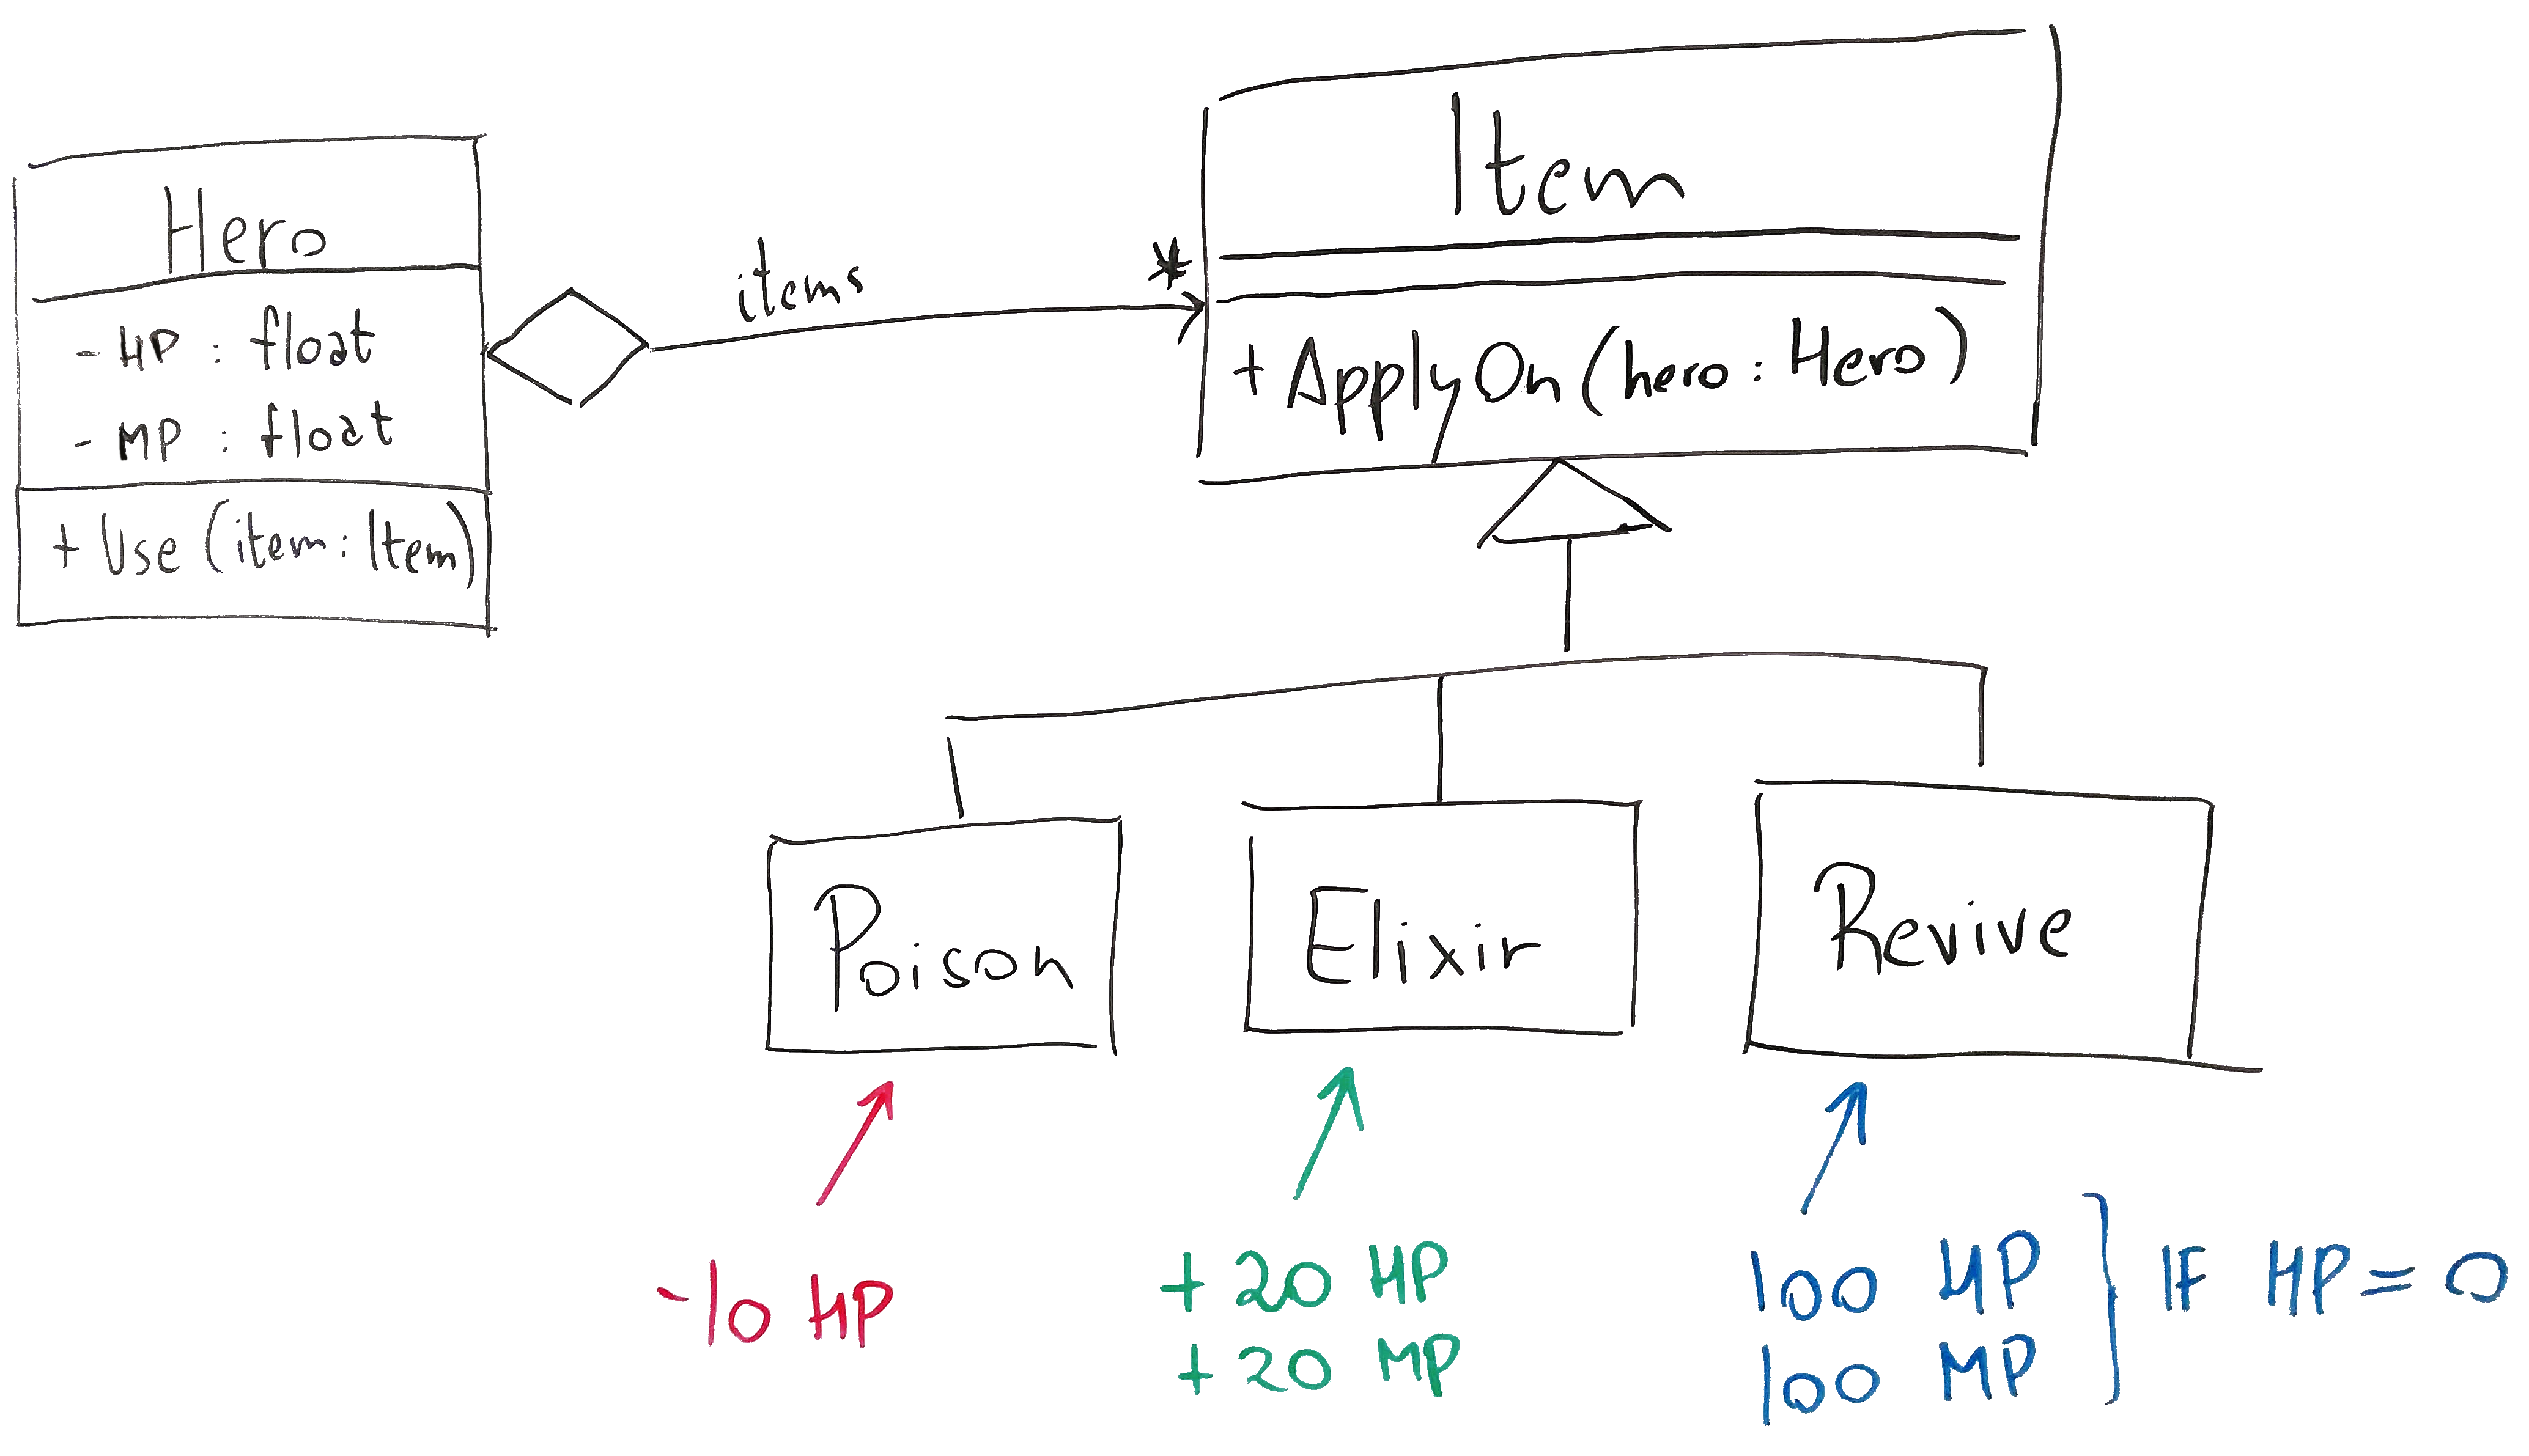 Hero
- HP : float
- MP : float
+ Use (item : Item)
items
*
Item
+ ApplyOn (hero : Hero)
Poison
Elixir
Revive
-10 HP
+ 20 HP
+ 20 MP
100 HP
100 MP
IF HP = 0